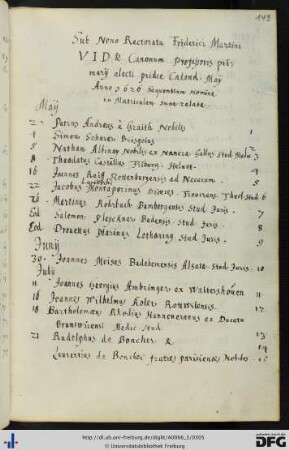 143
Sub Nono Rectoratu Friderici Martini
V I D & Canonum Professoris pri
marij electi pridie Calend. Maij
Anno 1626 sequentium Nomina
in Matriculam sunt relata.
Maij
2. Petrus Andreas à Graith Nobilis 1
4 Simon Scherer Brisgoius 2
5 Nathan Albinay Nobilis ex Nanceio Gallus Stud 3
8 Theodatus Castellus Filburg. Helvet. 4
16 Joannes Rottenburgensis ad Neccarum. 5
22 Jacobus Montaporinus Theol. Stud 6
26 Martinus Rohrbach Bambergensis Stud Juris. 7
Ed Salomon Pleschner Badensis Stud Juris 8
Eod Marinus Lotharing Stud Juris. 9
Junij
30. Joannes Moises Alsata Stud Juris. 10
Julij
11 Joannes Georgius Ambringer ex Waltershoven 11
16 Joannes Wilhelmus Koler Rotwilensis 12
18 Bartholomaeus Rhodius Hannoveranus ex Ducatu
Brunsvicensi Medic Stud 13
21 Rudolphus de Boncher & 14
Laurentius de Boncher fratres parisienses Nobiles 15
http://dl.ub.uni-freiburg.de/diglit/A0066_3/0305
© Universitätsbibliothek Freiburg
gefördert durch die
DFG